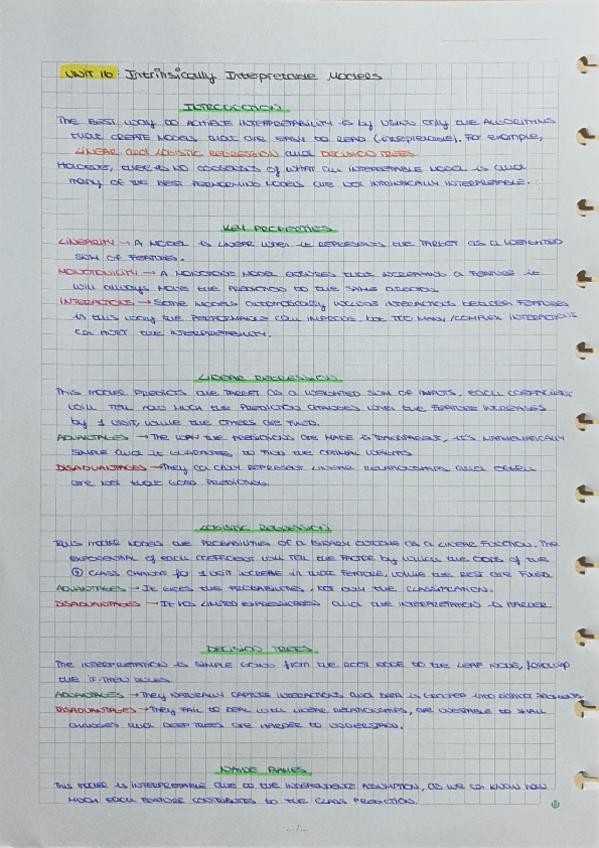 UNIT 16: Intrinsically Interpretable Models
INTRODUCTION
THE BEST WAY TO ACHIEVE INTERPRETABILITY IS BY USING ONLY THE ALGORITHMS
THAT CREATE MODELS THAT ARE EASY TO READ (INTERPRETABLE). FOR EXAMPLE,
LINEAR AND LOGISTIC REGRESSION AND DECISION TREES.
HOWEVER, THERE IS NO CONSENSUS OF WHAT AN INTERPRETABLE MODEL IS AND
MANY OF THE BEST PERFORMING MODELS ARE NOT INTRINSICALLY INTERPRETABLE.
KEY PROPERTIES
LINEARITY → A MODEL IS LINEAR WHEN IT REPRESENTS THE TARGET AS A WEIGHTED
SUM OF FEATURES.
MONOTONICITY → A MONOTONE MODEL THAT INCREASING A FEATURE IT
WILL ALWAYS MOVE THE PREDICTION TO THE SAME DIRECTION.
INTERACTIONS → SOME MODELS AUTOMATICALLY INCLUDE INTERACTIONS BETWEEN FEATURES
IN THIS WAY THE PERFORMANCE CAN IMPROVE, BUT TOO MANY/COMPLEX INTERACTIONS
CAN HURT THE INTERPRETABILITY.
LINEAR REGRESSION
THIS MODEL PREDICTS THE TARGET AS A WEIGHTED SUM OF INPUTS, EACH COEFFICIENT
WILL TELL HOW MUCH THE PREDICTION CHANGES WHEN THE FEATURE INCREASES
BY 1 UNIT, WHILE THE OTHERS ARE FIXED.
ADVANTAGES → THE WAY THE PREDICTIONS ARE MADE IS TRANSPARENT, IT'S MATHEMATICALLY
SIMPLE AND IT GUARANTEES TO FIND THE OPTIMAL WEIGHTS
DISADVANTAGES → THEY CAN ONLY REPRESENT LINEAR RELATIONSHIPS AND OFTEN
ARE NOT THAT GOOD PREDICTING.
LOGISTIC REGRESSION
THIS MODEL MODELS THE PROBABILITIES OF A BINARY OUTCOME AS A LINEAR FUNCTION. THE
EXPONENTIAL OF EACH COEFFICIENT WILL TELL THE FACTOR BY WHICH THE ODDS OF THE
⊕ CLASS CHANGES FOR 1 UNIT INCREASE IN THAT FEATURE, WHILE THE REST ARE FIXED
ADVANTAGES → IT GIVES THE PROBABILITIES, NOT ONLY THE CLASSIFICATION.
DISADVANTAGES → IT HAS LIMITED EXPRESSIVENESS AND THE INTERPRETATION IS HARDER
DECISION TREES
THE INTERPRETATION IS SIMPLE GOING FROM THE ROOT NODE TO THE LEAF NODE, FOLLOWING
THE IF-THEN RULES.
ADVANTAGES → THEY NATURALLY CAPTURE INTERACTIONS AND DATA IS GROUPED INTO DISTINCT
DISADVANTAGES → THEY FAIL TO DEAL WITH LINEAR RELATIONSHIPS, ARE UNSTABLE TO SMALL
CHANGES AND DEEP TREES ARE HARDER TO UNDERSTAND.
NAIVE BAYES
THIS MODEL IS INTERPRETABLE DUE TO THE INDEPENDENCE ASSUMPTION, AS WE CAN KNOW HOW
MUCH EACH FEATURE CONTRIBUTES TO THE CLASS PREDICTION.
.../...